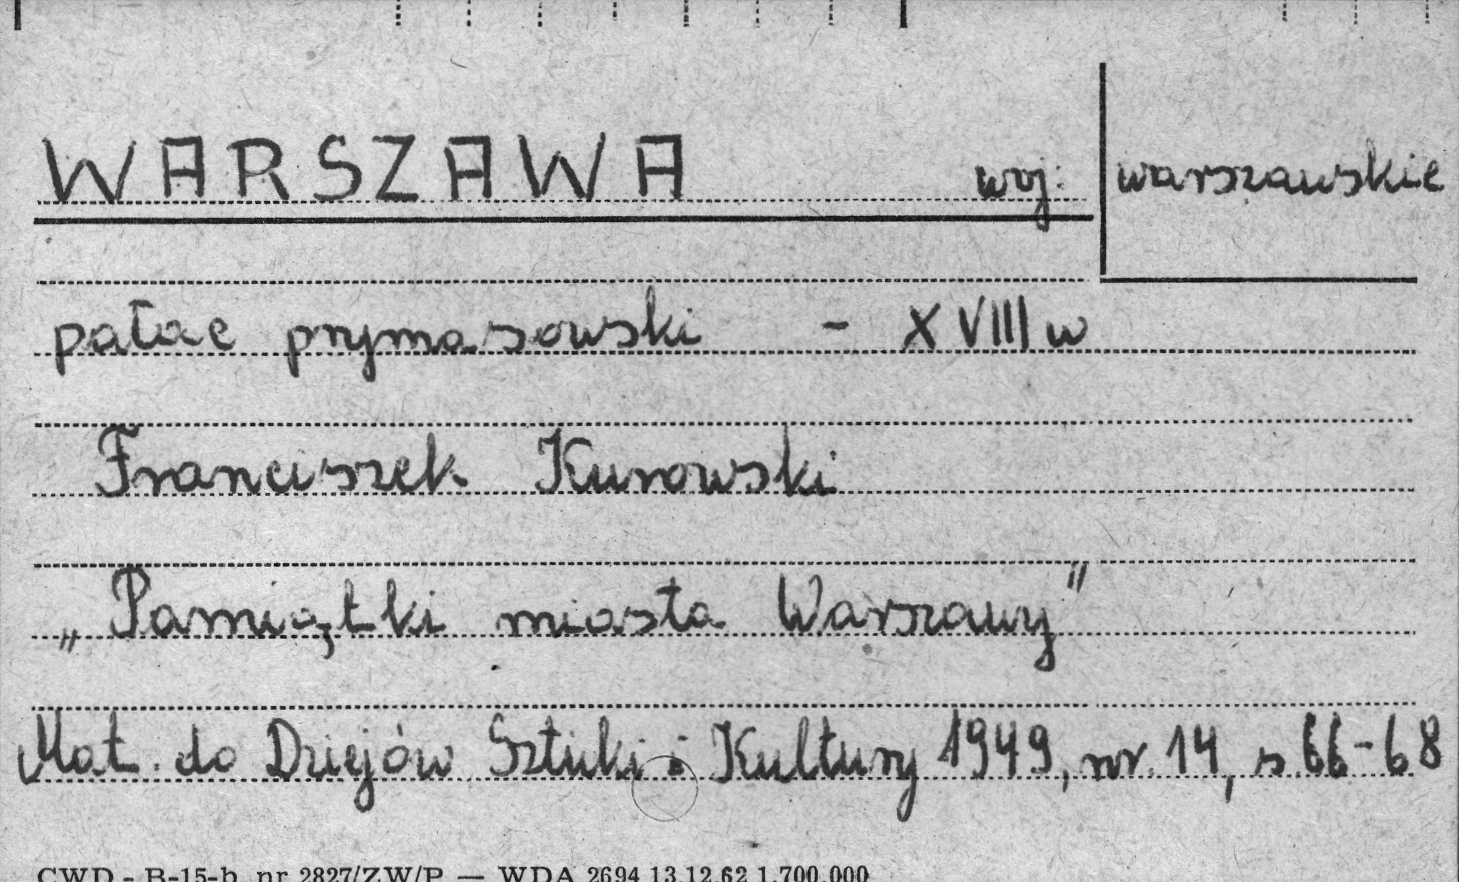 WARSZAWA woj: warszawskie
pałac prymasowski - XVIII w
Franciszek Kurowski
„Pamiątki miasta Warszawy"
Mat. do Dziejów Sztuki i Kultury 1949, nr. 14, s. 66-68
CWD - B-15-b, nr 2827/ZW/P — WDA 2694 13.12.62 1.700.000